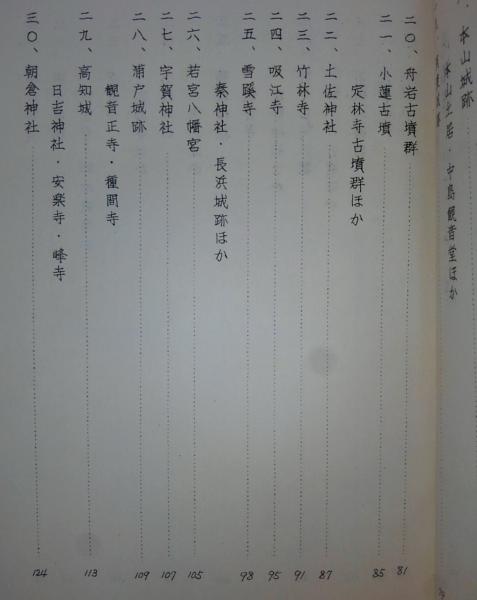 本山城跡
本山土居・中島観音堂ほか
二〇、舟岩古墳群 81
二一、小蓮古墳 85
定林寺古墳群ほか
二二、土佐神社 87
二三、竹林寺 91
二四、吸江寺 95
二五、雪蹊寺 98
秦神社・長浜城跡ほか
二六、若宮八幡宮 105
二七、宇賀神社 107
二八、浦戸城跡 109
観音正寺・種間寺
二九、高知城 113
日吉神社・安楽寺・峰寺
三〇、朝倉神社 124